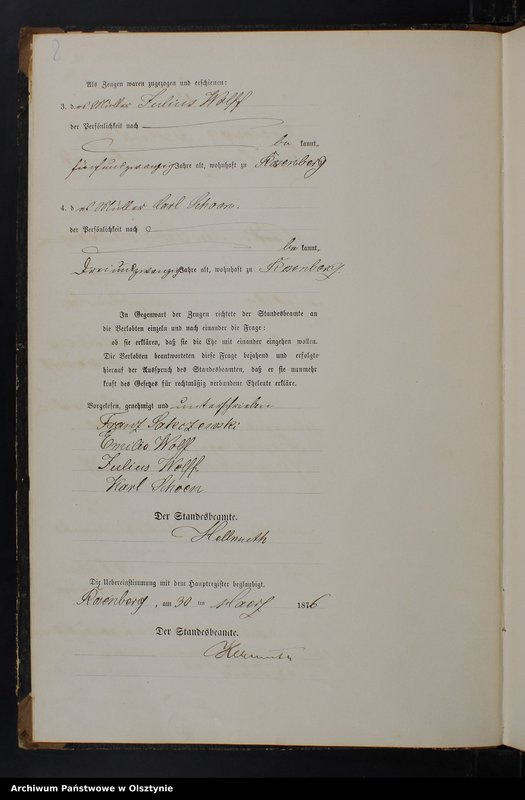 8
Als Zeugen waren zugezogen und erschienen:
3. der Müller Julius Wolff
der Persönlichkeit nach
be kannt,
fünfundzwanzig Jahre alt, wohnhaft zu Rosenberg
4. der Müller Karl Schoen.
der Persönlichkeit nach
be kannt,
dreiundzwanzig Jahre alt, wohnhaft zu Rosenberg.
In Gegenwart der Zeugen richtete der Standesbeamte an
die Verlobten einzeln und nach einander die Frage:
ob sie erklären, daß sie die Ehe mit einander eingehen wollen.
Die Verlobten beantworteten diese Frage bejahend und erfolgte
hierauf der Ausspruch des Standesbeamten, daß er sie nunmehr
kraft des Gesetzes für rechtmäßig verbundene Eheleute erkläre.
Vorgelesen, genehmigt und unterschrieben
Franz
Emilie Wolff
Julius Wolff.
Karl Schoen
Der Standesbeamte.
Hellmuth
Die Uebereinstimmung mit dem Hauptregister beglaubigt.
Rosenberg, am 30 ten Maerz 1876
Der Standesbeamte.
Archiwum Państwowe w Olsztynie